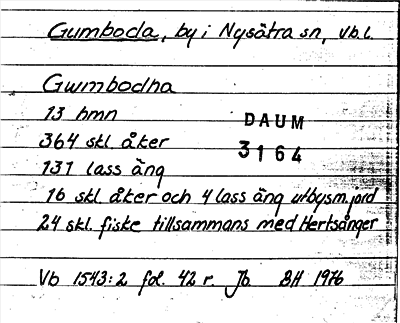 Gumboda, by i Nysätra sn, Vb.l.
Gwmbodha
13 hmn
DAUM
364 skl åker
3164
131 lass äng
16 skl åker och 4 lass äng utbysm.jord
24 skl. fiske tillsammans med Hertsånger
Vb 1543:2 fol. 42 r. Jb BH 1976